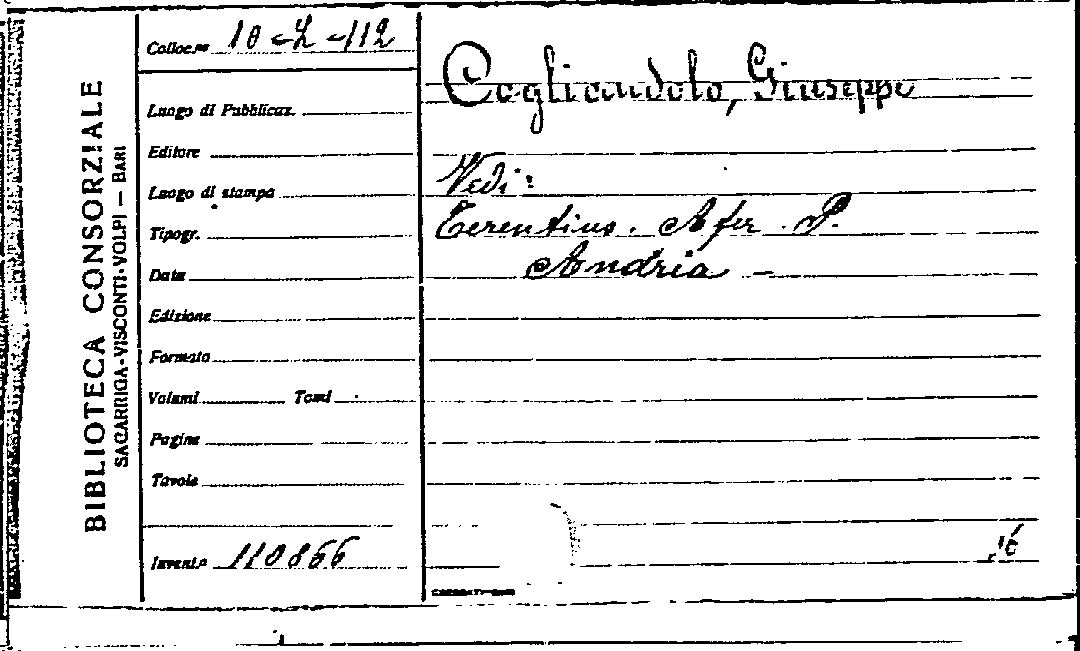 BIBLIOTECA CONSORZIALE
SAGARRIGA-VISCONTI-VOLPI — BARI
Colloc.ne 10-L-112
Luogo di Pubblicaz.
Editore
Luogo di stampa
Tipogr.
Data
Edizione
Formato
Volumi Tomi
Pagine
Tavole
Invent.o 110866
Coglicandolo, Giuseppe
Vedi:
Terentius. Afer P.
Andria -